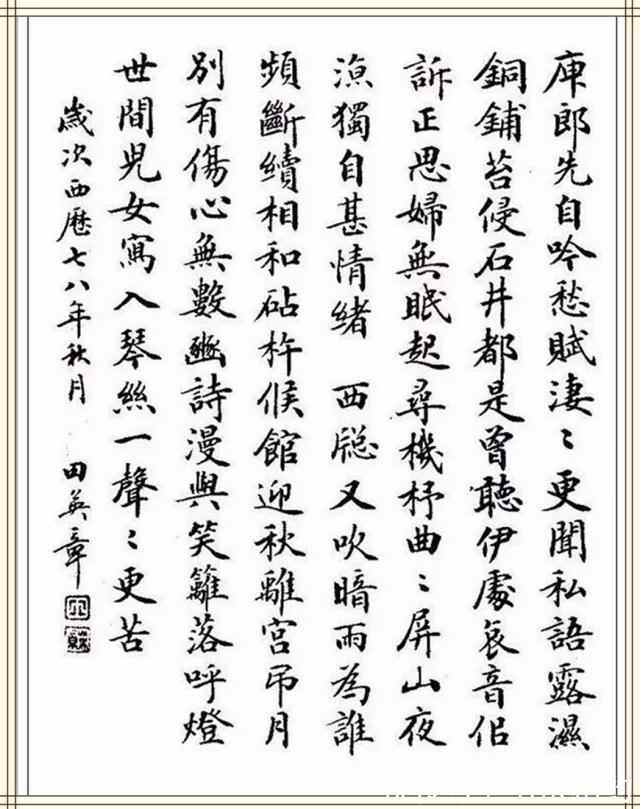 庾郎先自吟愁賦淒〻更聞私語露濕
銅鋪苔侵石井都是曾聽伊處哀音佀
訴正思婦無眠起尋機杼曲〻屏山夜
涼獨自甚情緒 西窗又吹暗雨為誰
頻斷續相和砧杵候館迎秋離宮吊月
別有傷心無數豳詩漫與笑籬落呼燈
世間兒女寫入琴絲一聲〻更苦
歲次西歷七八年秋月 田英章